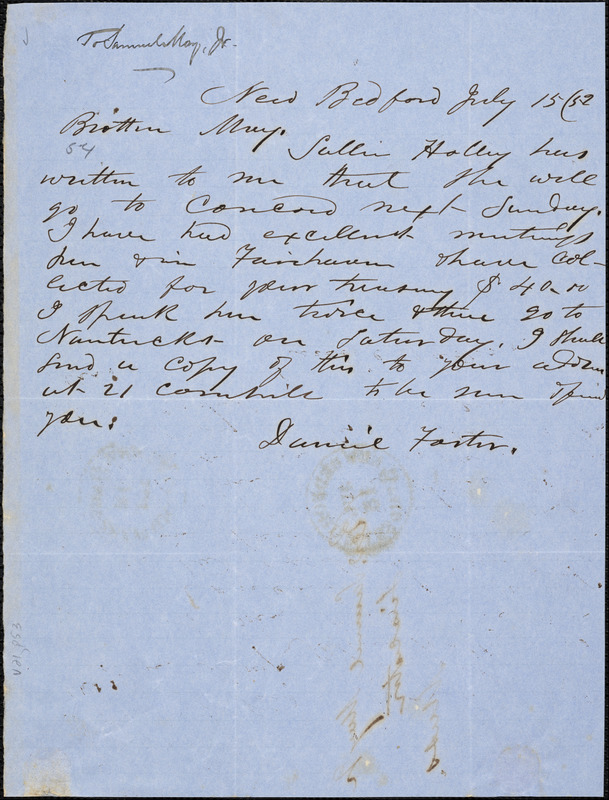 To Samuel May, Jr.
New Bedford July 15/52
Brother May.
54
Sallie Holley has
written to me that she will
go to Concord next Sunday.
I have had excellent meetings
here & in Fairhaven & have col-
lected for your treasury $ 40.00
I speak here twice & then go to
Nantucket on Saturday. I shall
send a copy of this to your address
at 21 Cornhill to be sure
you:
Daniel Foster.
V21, p53